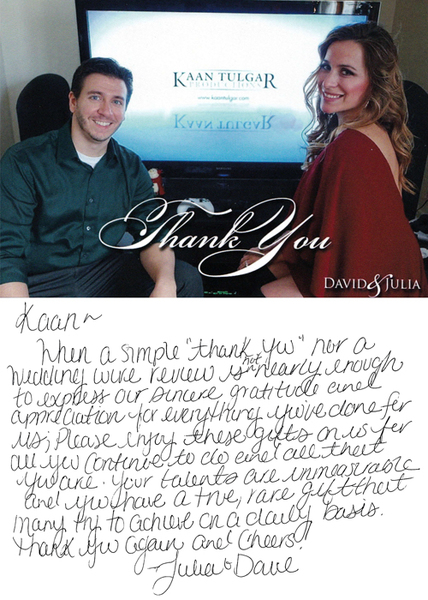 KAAN TULGAR
PRODUCTIONS
www.kaantulgar.com
KAAN TULGAR
Thank You
DAVID & JULIA
Kaan ~
When a simple "thank you" nor a
wedding wire review is not nearly enough
to express our sincere gratitude and
appreciation for everything you've done for
us; Please enjoy these gifts on us for
all you continue to do and all that
you are. Your talents are unmeasurable
and you have a true, rare gift that
many try to achieve on a daily basis.
Thank you again and Cheers!
~ Julia & Dave